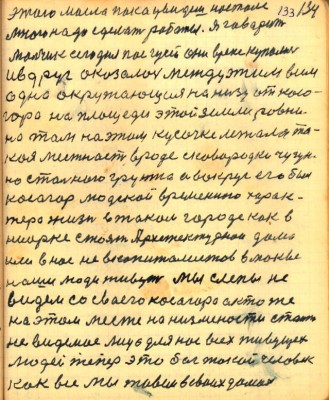 этого мала пока увидеш настоле 133/34
много надо сделать работы. Я говарит
молчик сегодня пас гусей они вреке купались
и вдруг оказалос между этим всем
одна окружающия на низу от косо-
гора на площеди этой земли ровни-
на там на этом кусочке лежала та-
кая местност вроде сковородки чугун-
но сталного грунта а вокруг его был
косагор людской временного харак-
тера жизн в таком городе как в
стоят Архетектурнои дома
или в нас не в
наши люди живут мы слепы не
видем со сваего косагора а кто же
на этом месте на низмености стаит
не видемое лицо для нас всех живущех
людей тепер это был такой человек
как все мы жавем в сваих домах